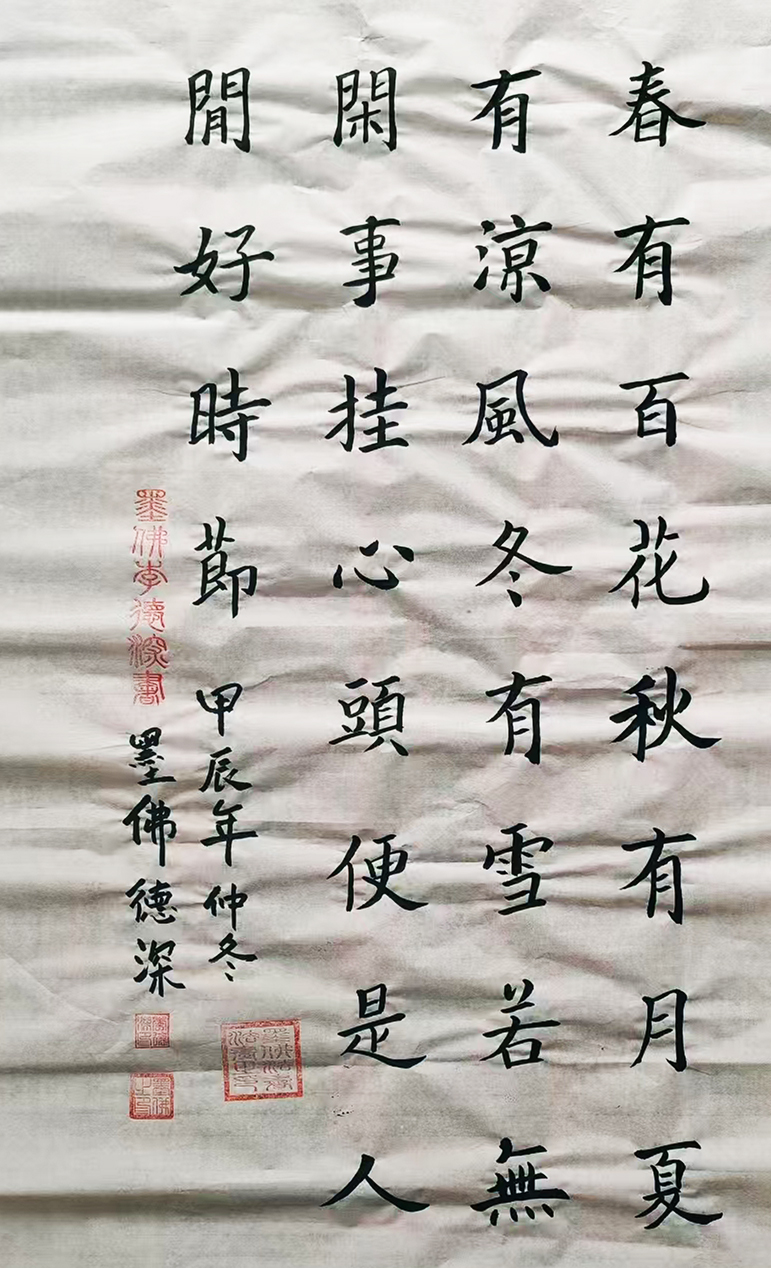 春有百花秋有月夏
有涼風冬有雪若無
閑事挂心頭便是人
閒好時節
甲辰年仲冬
墨佛李德深書
墨佛德深